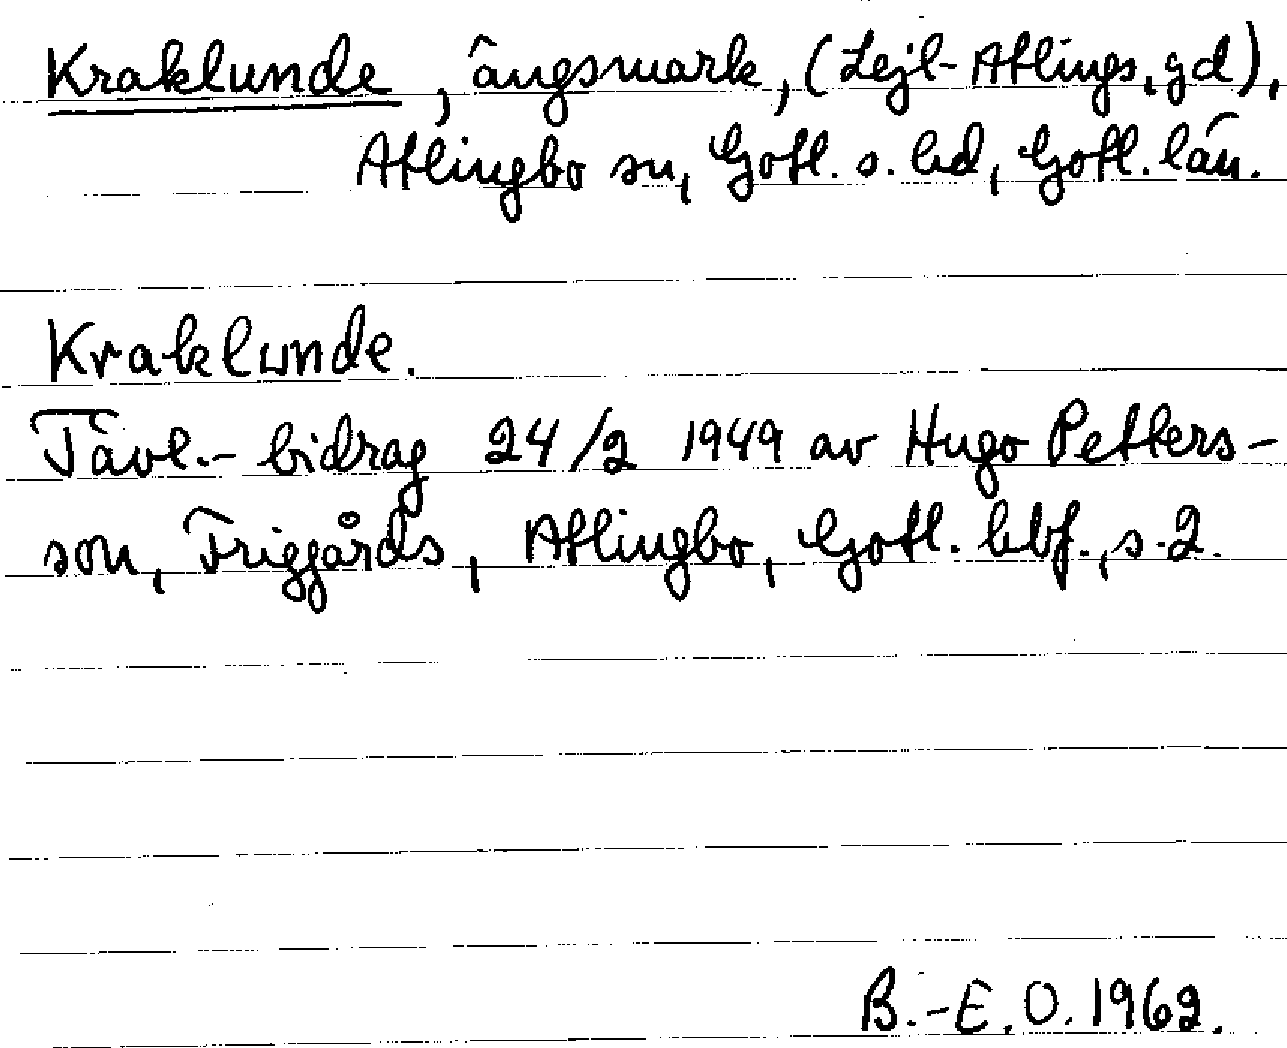 Kraklunde, ängsmark, (Lejl-Atlings, gd),
Atlingbo sn, Gotl. s. hd, Gotl. län.
Kraklunde.
Tävl.- bidrag 24/2 1949 av Hugo Petters-
son, Friggårds, Atlingbo, Gotl. hbf., s. 2.
B.-E. O. 1962.